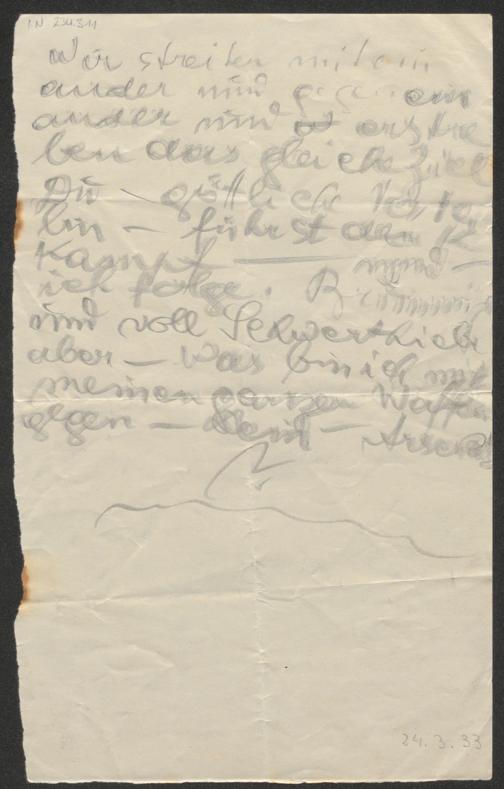 I.N. 234.311
Wir streiten mitein
ander und gegenein
ander und erstre
ben das gleiche Ziel
Du – göttliche
lin – führst den
Kampf — und –
ich folge.
und voll Schwerthiebe
aber – was bin ich mit
meinen ganzen Waffen
gegen – Dein – Arsenal
24.3.33